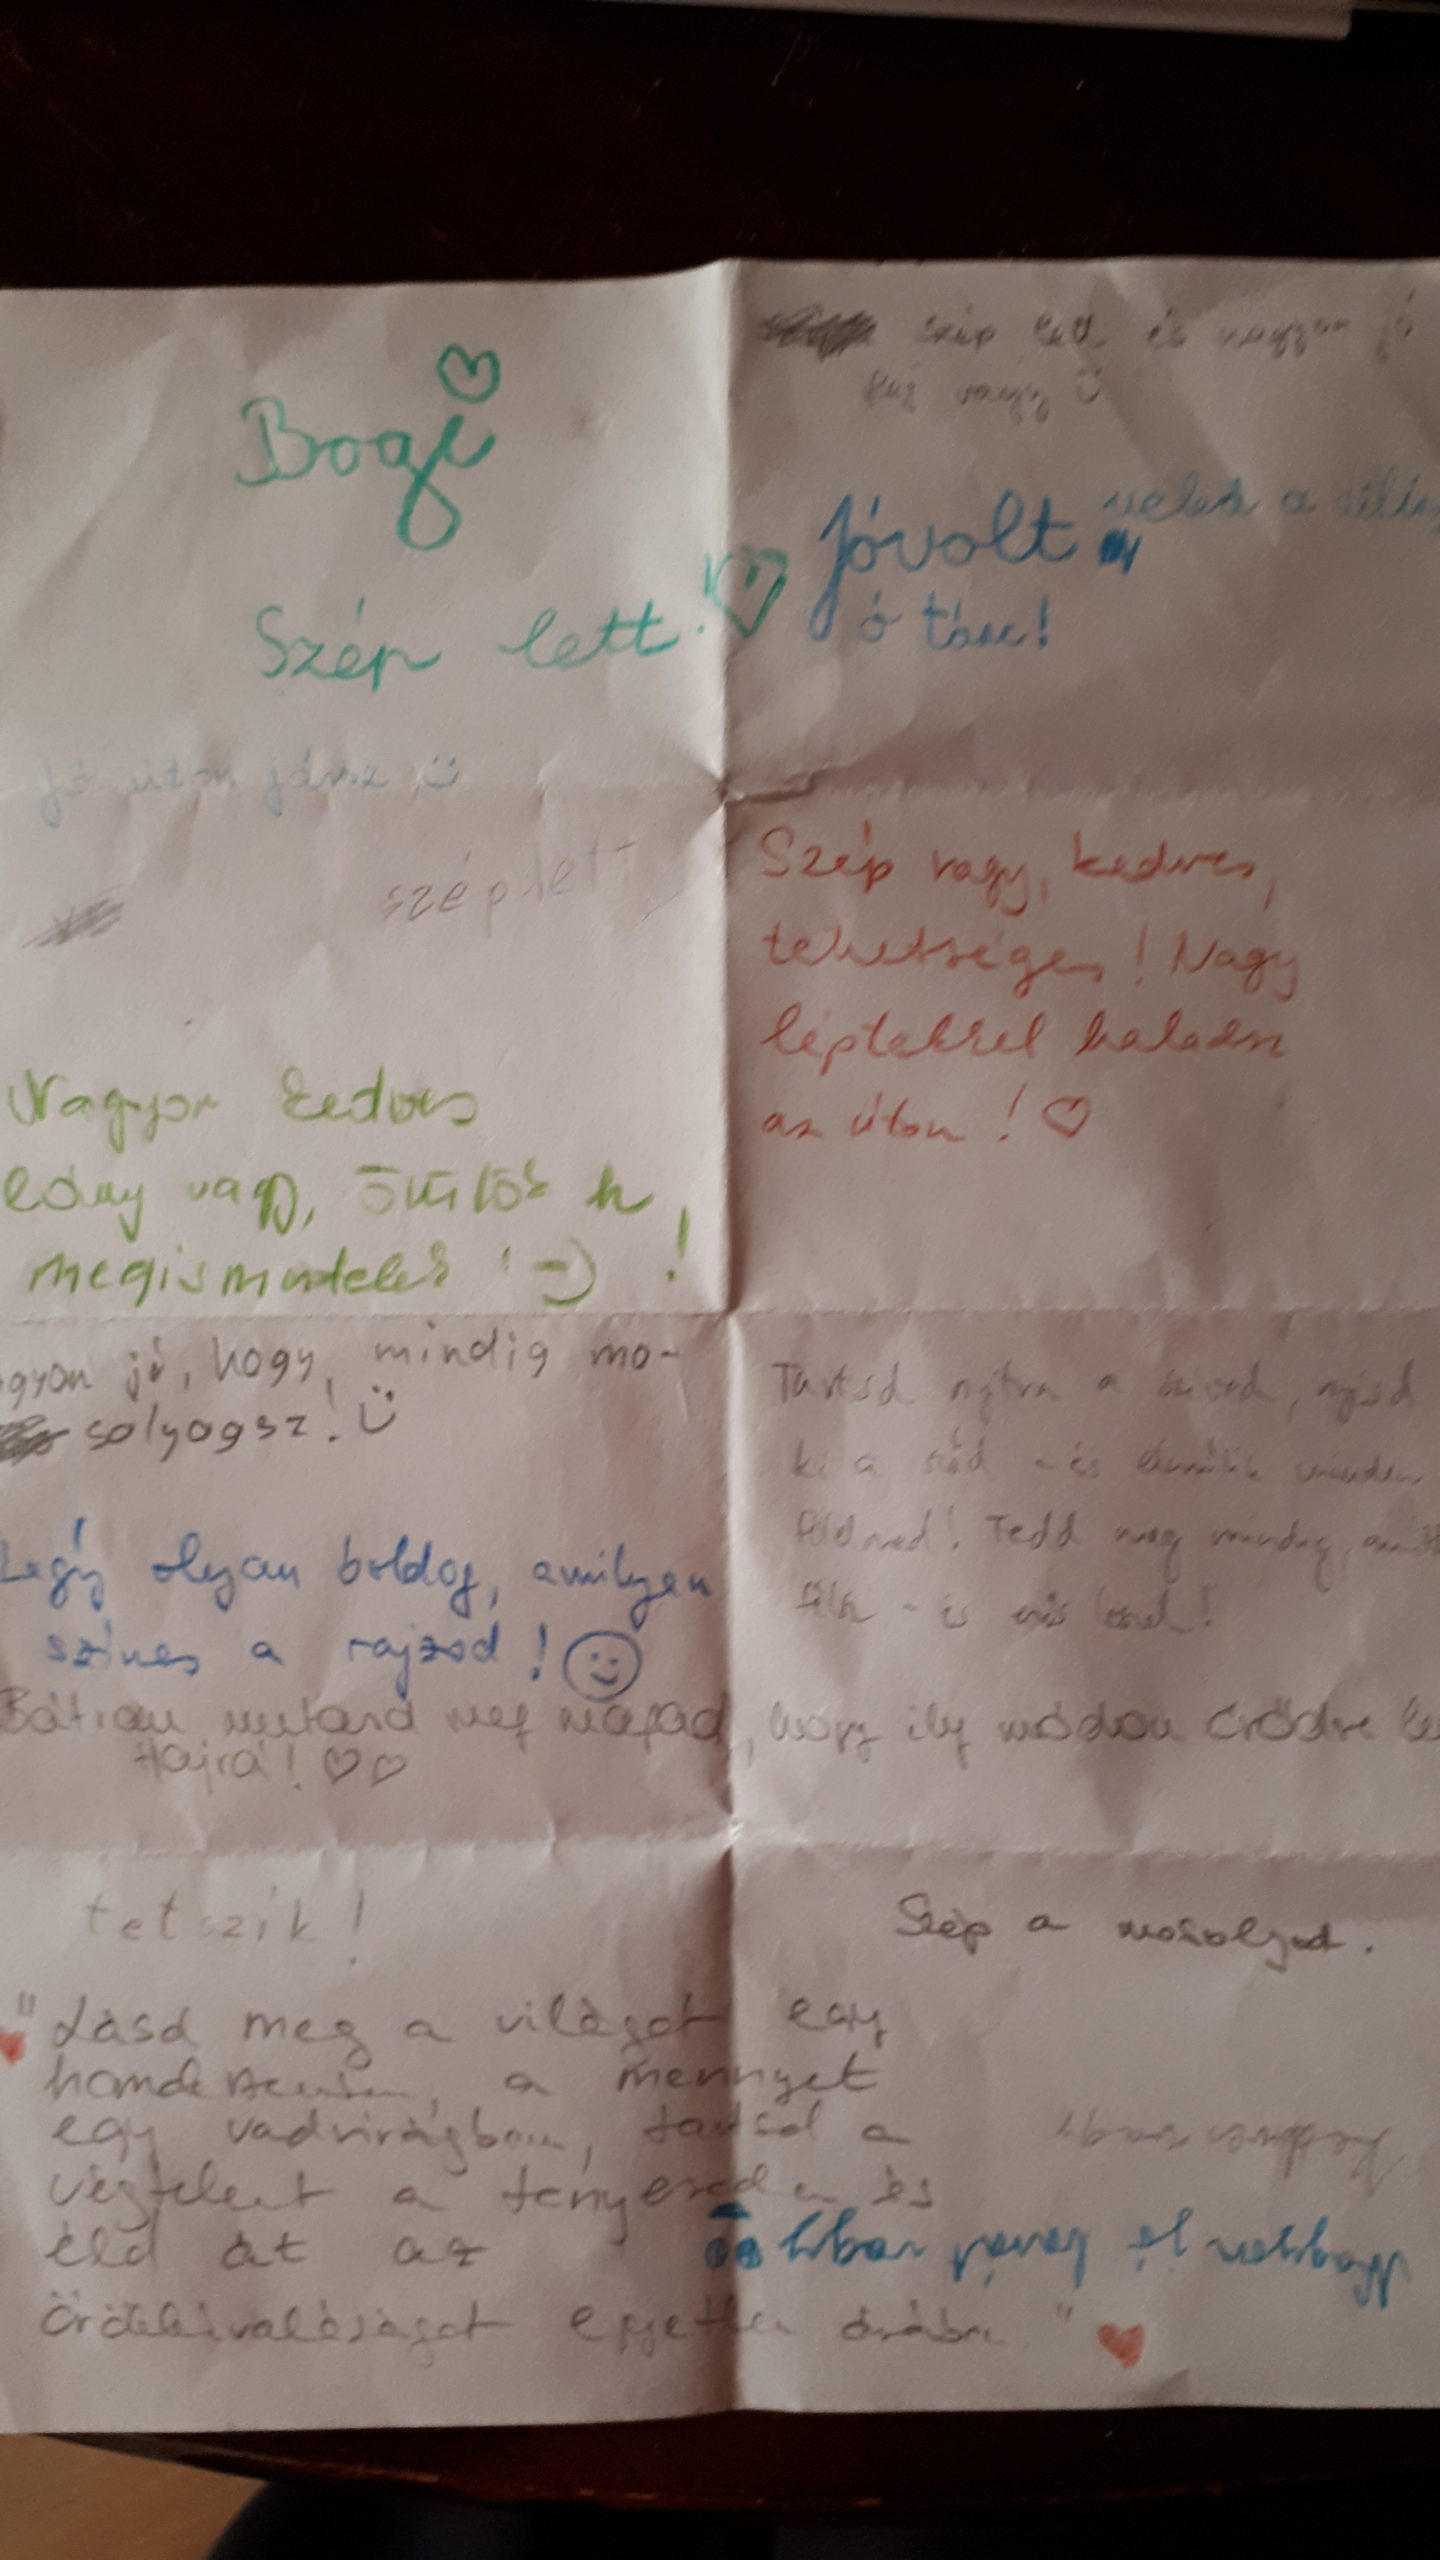 Bogi
Szép lett!
szép lett és nagyon jó
fej vagy
Jóvolt veled a
ó tánc!
Jó úton jársz
szép lett
Szép vagy, kedves,
tehetséges! Nagy
léptekkel haladsz
az úton!
Nagyon kedves
lány vagy, örülök h
megismertelek! :-)
gyon jó, hogy mindig mo-
solyogsz!
Légy olyan boldog, amilyen
színes a rajzod!
Tartsd nyitva a szíved, nyisd
ki a szád - és elmúlik minden
Tedd meg mindig, amitől
félsz - és erős leszel!
Bátran mutasd meg magad, hogy ily módon
Hajrá!
tetszik!
Szép a mosolyod.
"Lásd meg a világot egy
homokszemben, a mennyet
egy vadvirágban, tartsd a
végtelent a tenyereden és
éld át az
örökkévalóságot egyetlen órában"
kedves vagy
Nagyon jó tanuló vagy